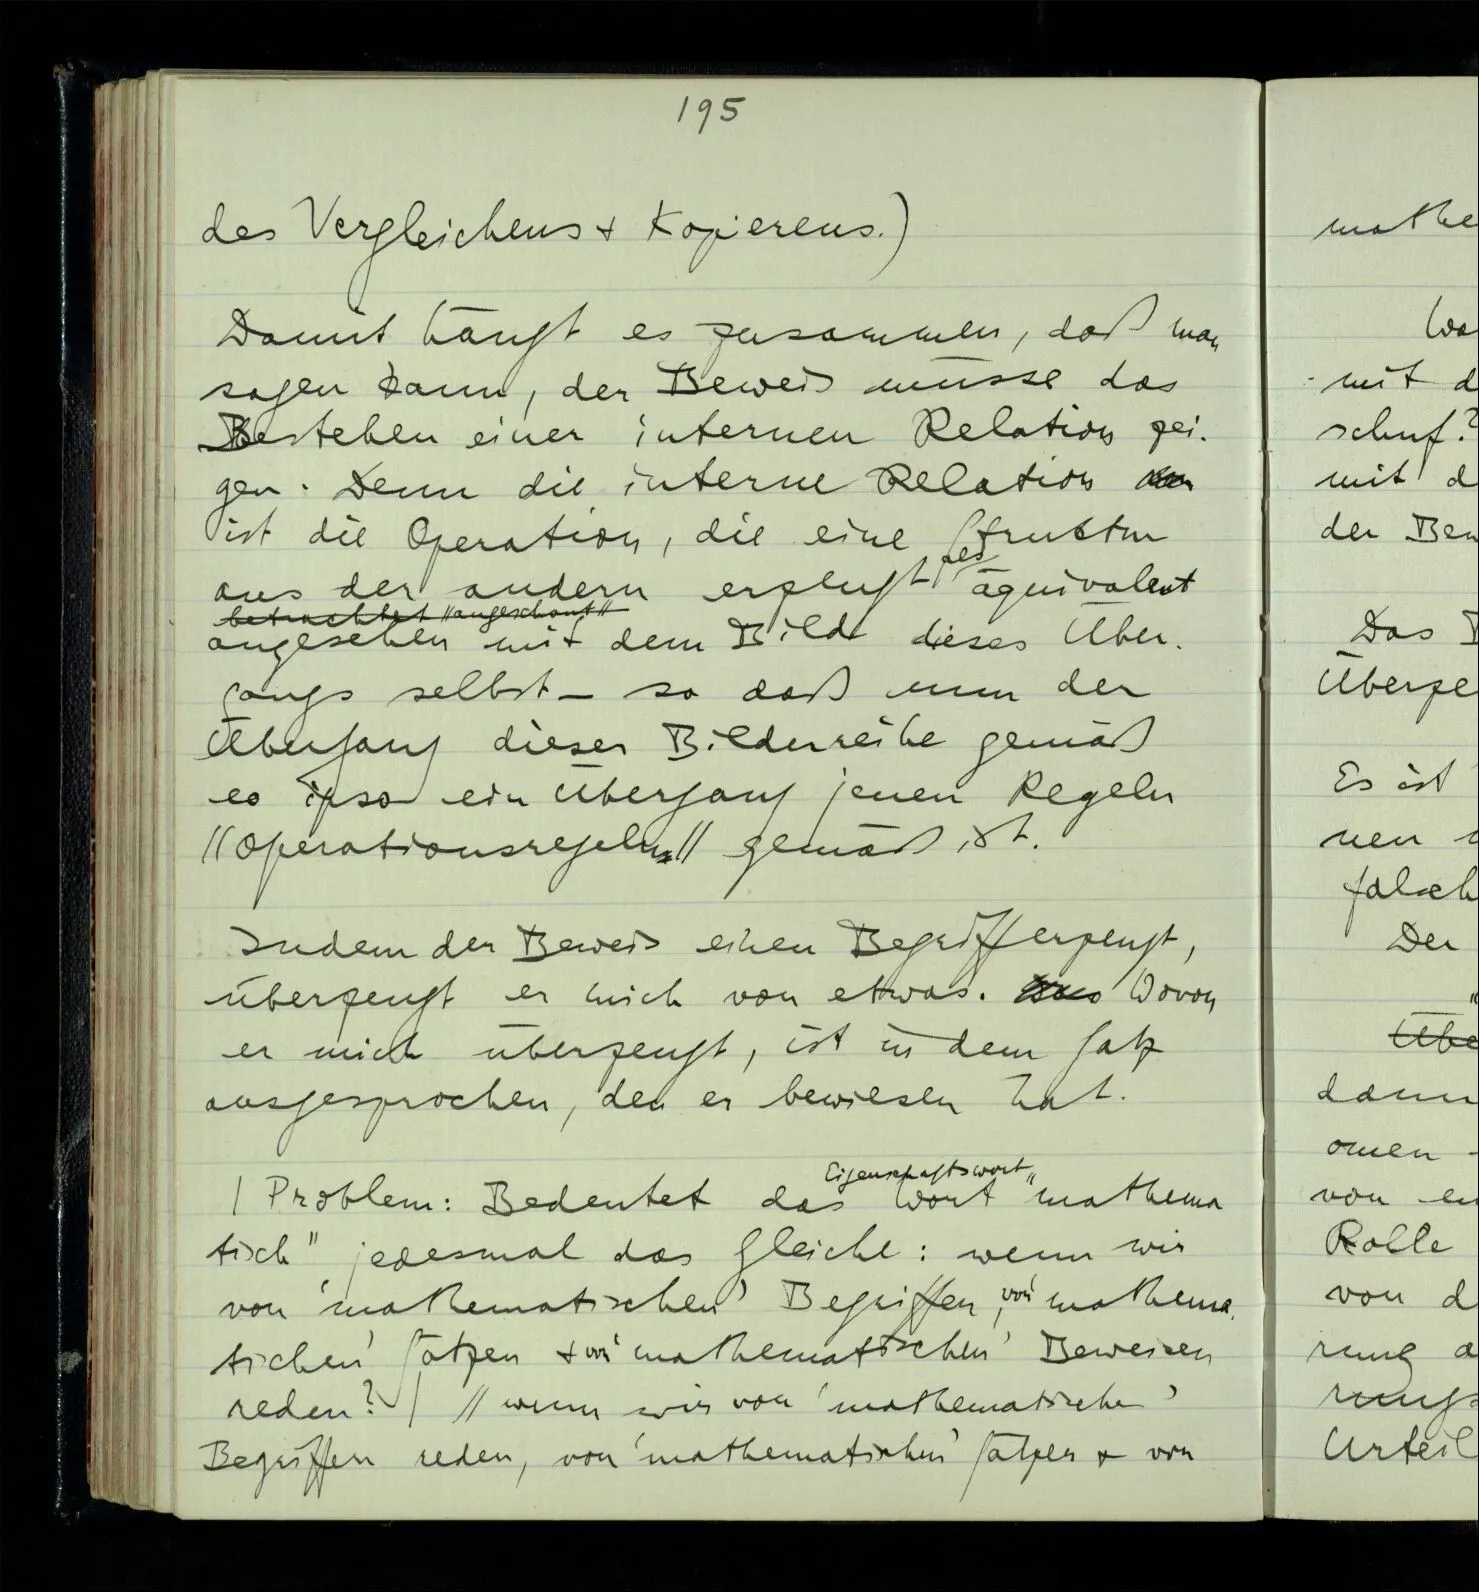 195
des Vergleichens & Kopierens.)
Damit hängt es zusammen, daß man
sagen kann, der Beweis müsse das
Bestehen einer internen Relation zei-
gen. Denn die interne Relation
ist die Operation, die eine Struktur
aus der andern erzeugt, als äquivalent
betrachtet "angeschaut"
angesehen mit dem Bild dieses Über-
gangs selbst – so daß nun der
Übergang dieser Bilderreihe gemäß
eo ipso ein Übergang jenen Regeln
//Operationsregeln// gemäß ist.
Indem der Beweis einen Begriff erzeugt,
überzeugt er mich von etwas. Wovon
er mich überzeugt, ist in dem Satz
ausgesprochen, den er bewiesen hat.
Eigenschaftswort
/ Problem: Bedeutet das Wort "mathema
tisch" jedesmal das Gleiche: wenn wir
von 'mathematischen' Begriffen, von 'mathema-
tischen' Sätzen & von 'mathematischen' Beweisen
reden? / // wenn wir von 'mathematischen'
Begriffen reden, von 'mathematischen' Sätzen & von
mit
schuf?
mit
der
Das
Es ist
nen
falsch
Der
dann
omen
von
Rolle
von
rung
Urteil